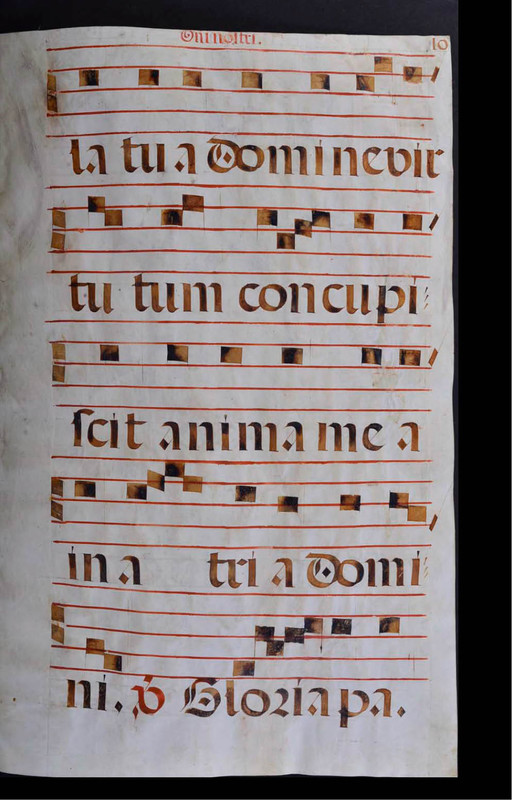 Oni nostri.
10
la tu a domine vir
tu tum concupi
scit anima me a
in a tri a domi
ni. ℣ Gloria pa.